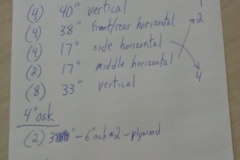 (4) 40" vertical
(4) 38" front/rear horizontal
(4) 17" side horizontal
(2) 17" middle horizontal
(8) 33" vertical
2
4
4" oak
(2) - 6" oak 2 - plywood